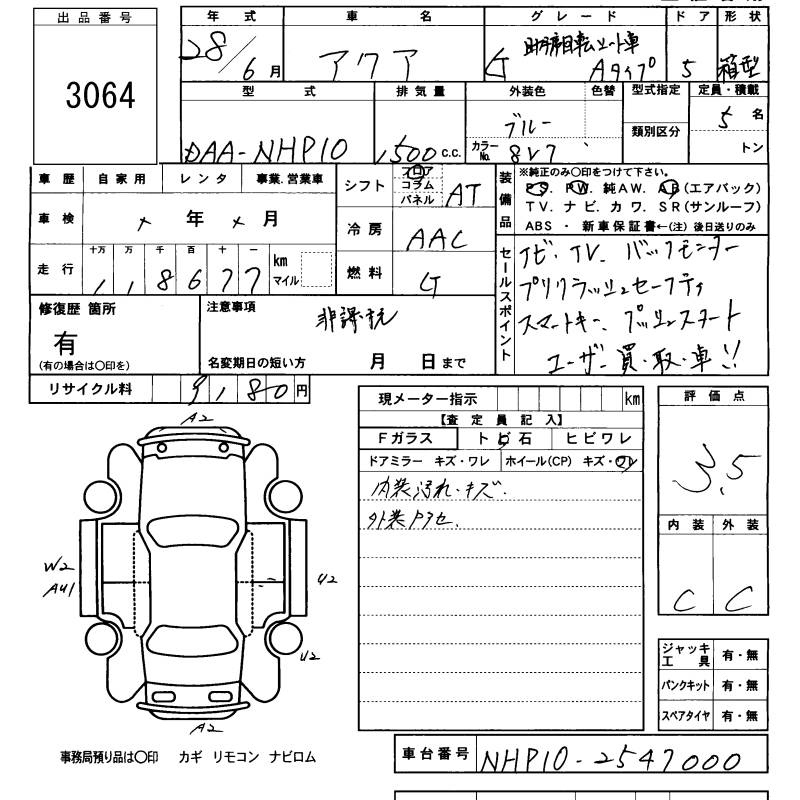 出品番号
3064
年式 車名 グレード ドア 形状
28/6月 アクア G 助手席回転シート車 Aタイプ 5 箱型
型式 排気量 外装色 色替 型式指定 定員・積載
類別区分
DAA-NHP10 1500 C.C. ブルー カラーNo. 8V7 5名
トン
車歴 自家用 レンタ 事業.営業車
車検 × 年 × 月
走行 十万 万 千 百 十 一
118677 km マイル
シフト フロア コラム パネル AT
冷房 AAC
燃料 G
装備品 ※純正のみ○印をつけて下さい。
PS. PW. 純AW. AB (エアバック)
TV. ナビ. カワ. SR (サンルーフ)
ABS ・ 新車保証書←(注) 後日送りのみ
セールスポイント
ナビ. TV. バックモニター
プリクラッシュセーフティ
スマートキー. プッシュスタート
ユーザー買・取・車!!
修復歴 箇所
有
(有の場合は○印を)
注意事項
非課税
名変期日の短い方 月 日まで
リサイクル料 9,180円
現メーター指示 km
【査定員記入】
Fガラス トビ石 ヒビワレ
ドアミラー キズ・ワレ ホイール(CP) キズ・ワレ
内装汚れ・キズ.
外装ヤケセ.
評価点
3.5
内装 外装
C C
ジャッキ工具 有・無
パンクキット 有・無
スペアタイヤ 有・無
A2
W2
AU1
U2
U2
A2
事務局預り品は○印 カギ リモコン ナビロム
車台番号 NHP10-2547000